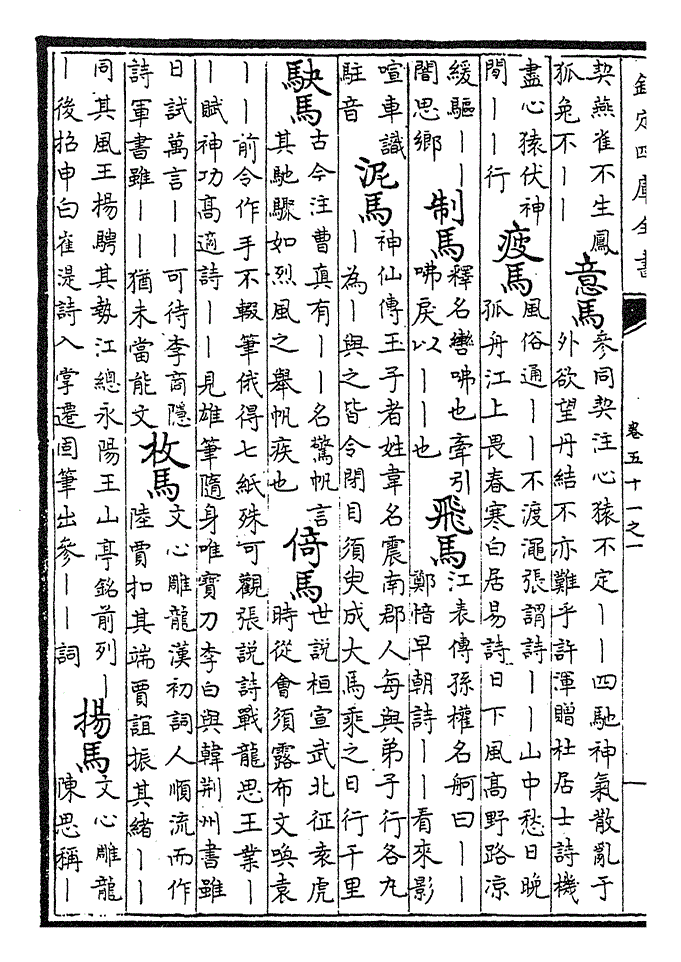 欽定四庫全書
卷五十一之一
一
契燕雀不生鳳
狐兔不丨丨
意馬
參同契注心猿不定丨丨四馳神氣散亂于
外欲望丹結不亦難乎許渾贈杜居士詩機
盡心猿伏神
閒丨丨行
疲馬
風俗通丨丨不渡澠張謂詩丨丨山中愁日晚
孤舟江上畏春寒白居易詩日下風高野路凉
緩驅丨丨
闇思鄉
制馬
釋名轡咈也牽引
咈戾以丨丨也
飛馬
江表傳孫權名舸曰丨丨
鄭愔早朝詩丨丨看來影
喧車識
駐音
泥馬
神仙傳王子者姓韋名震南郡人每與弟子行各九
丨為丨與之皆令閉目須臾成大馬乘之日行千里
駃馬
古今注曹真有丨丨名驚帆言
其馳驟如烈風之舉帆疾也
倚馬
世説桓宣武北征袁虎
時從會須露布文喚袁
丨丨前令作手不輟筆俄得七紙殊可觀張説詩戰龍思王業丨
丨賦神功高適詩丨丨見雄筆隨身唯寶刀李白與韓荆州書雖
日試萬言丨丨可待李商隱
詩軍書雖丨丨猶未當能文
枚馬
文心雕龍漢初詞人順流而作
陸賈扣其端賈誼振其緒丨丨
同其風王揚騁其勢江總永陽王山亭銘前列丨
丨後招申白崔湜詩入掌遷固筆出參丨丨詞
揚馬
文心雕龍
陳思稱丨